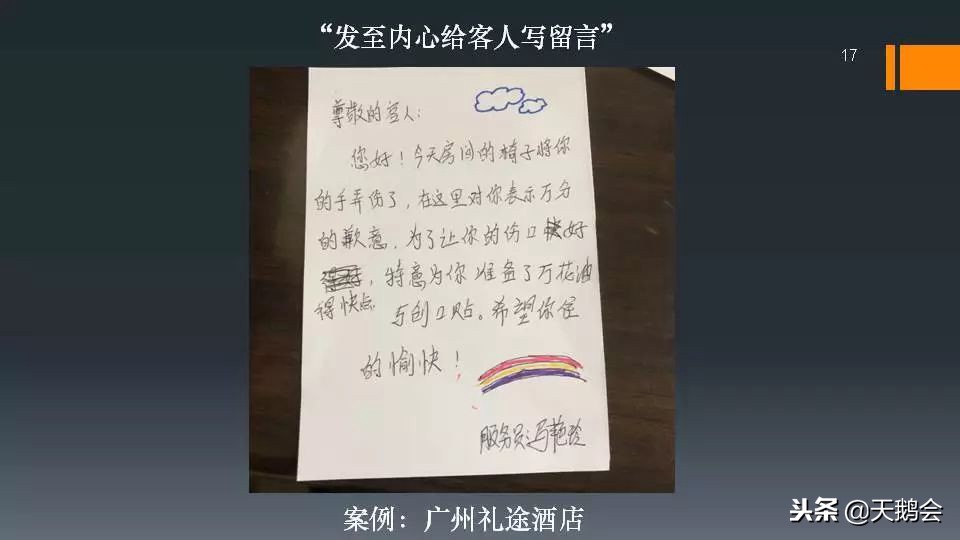 “发至内心给客人写留言”
17
尊敬的客人：
您好！今天房间的椅子将你
的手弄伤了，在这里对你表示万分
的歉意，为了让你的伤口快好
得快点，特意为你准备了万花油
与创口贴。希望你住
的愉快！
服务员：冯艳玲
案例：广州礼途酒店
头条 @天鹅会